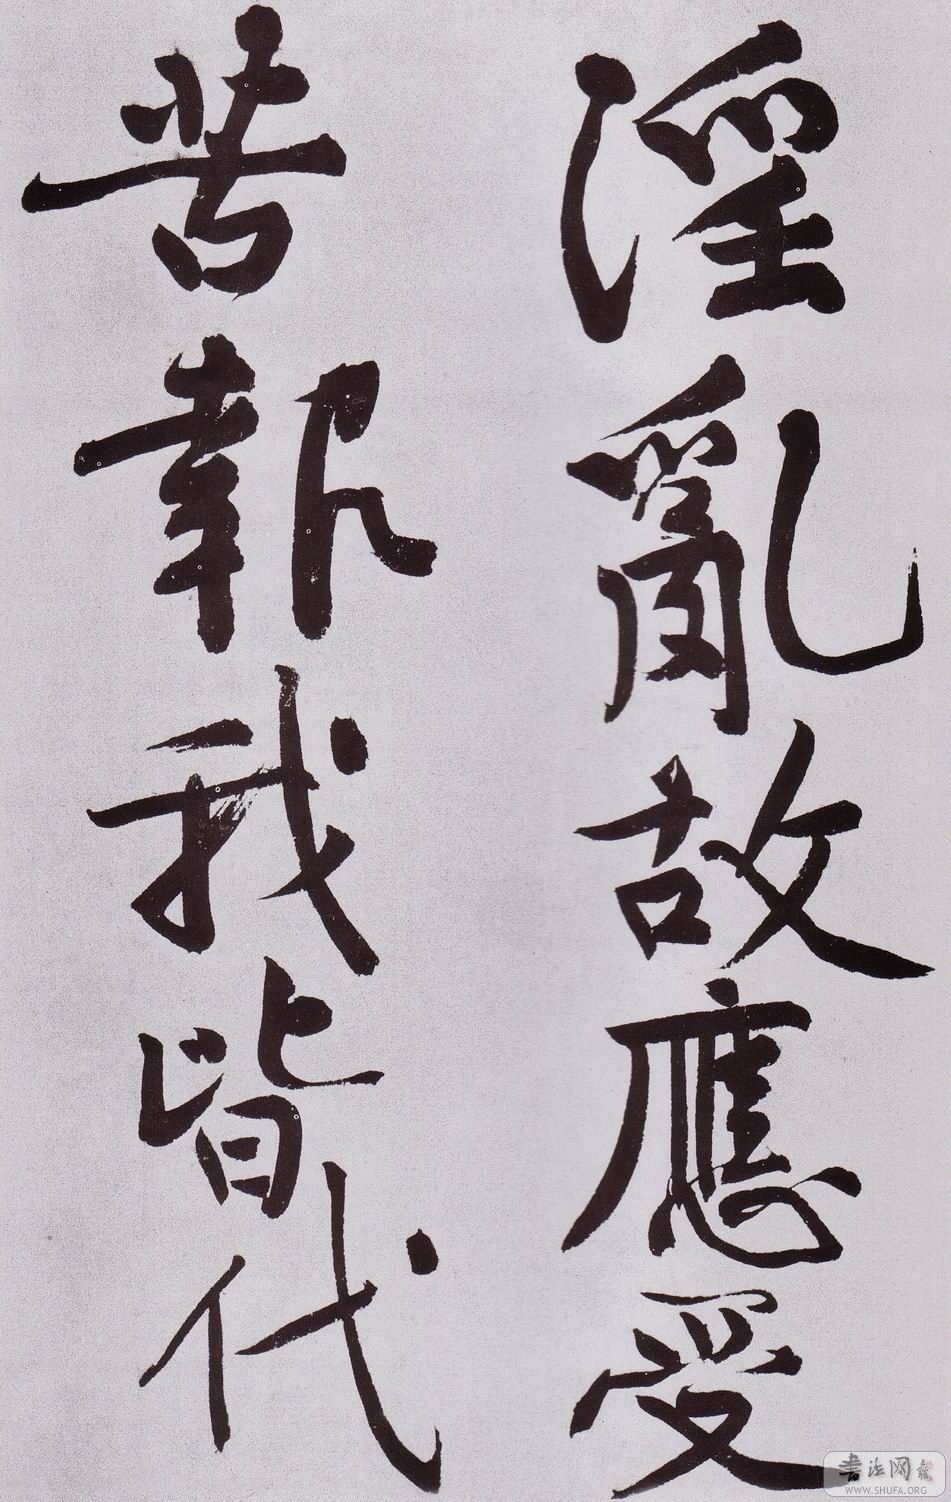 淫亂故應受
苦報我皆代
書法网
WWW.SHUFA.ORG